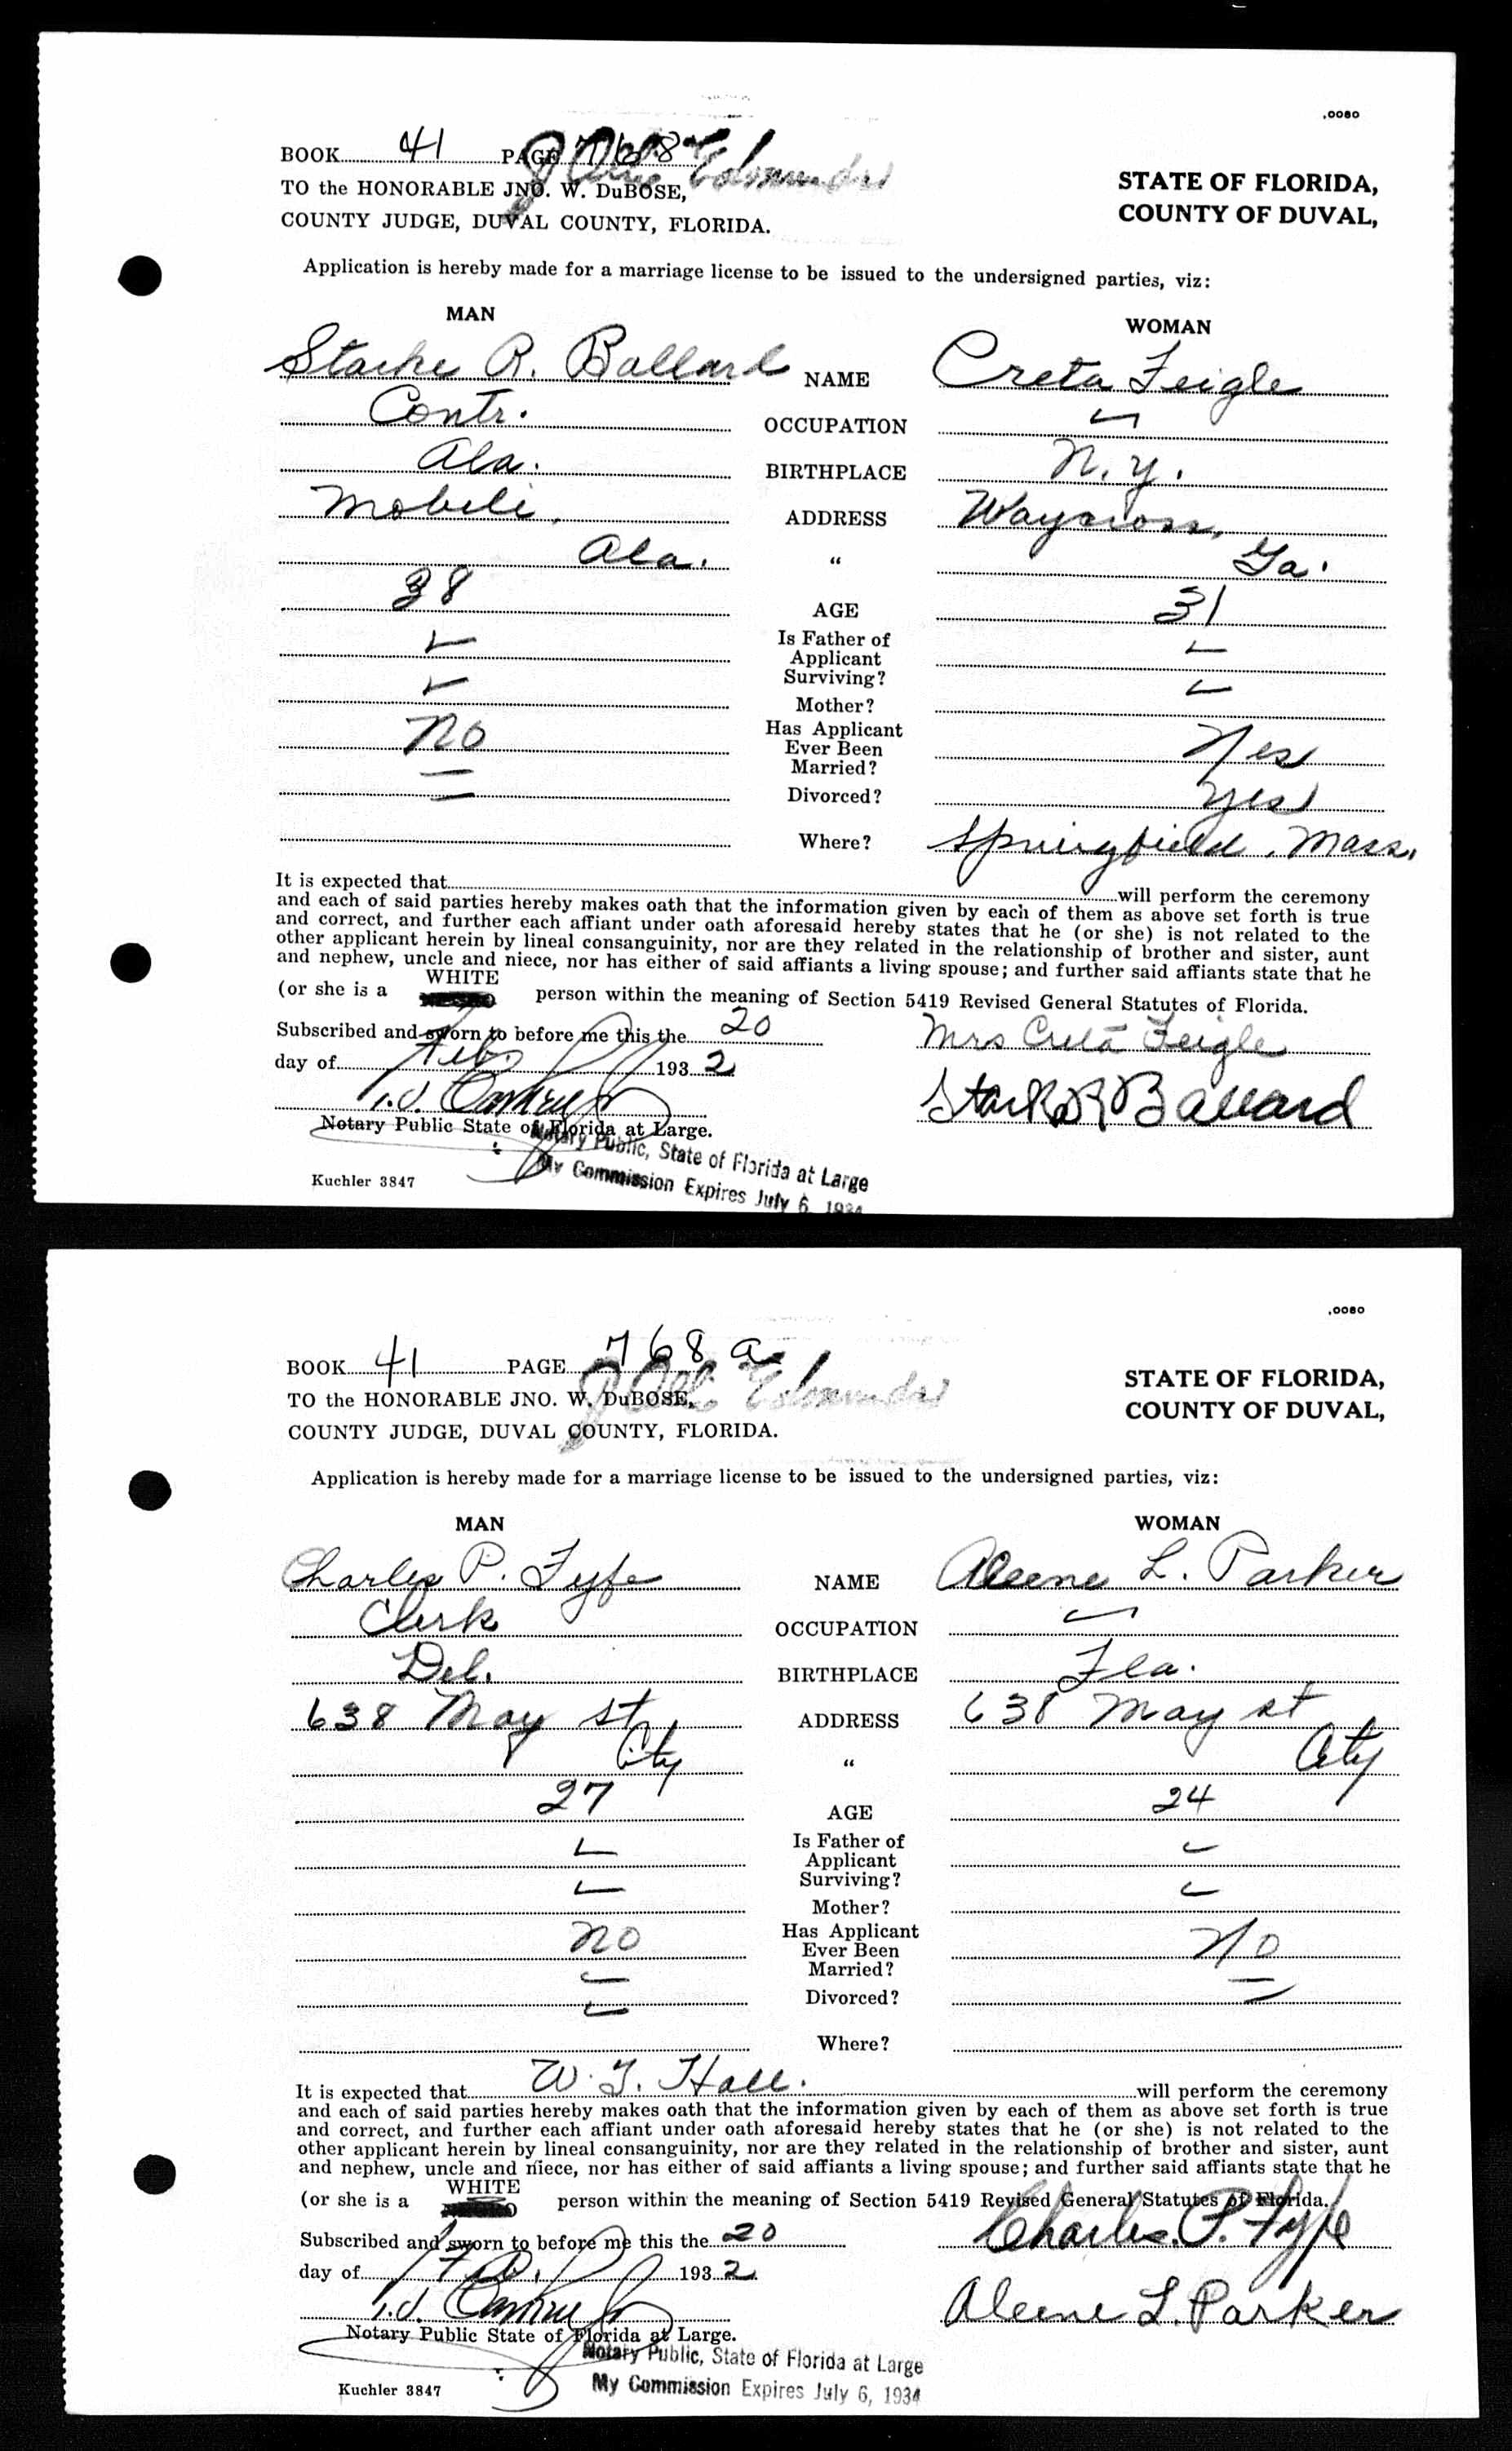 .0080
BOOK 41 PAGE 768
TO the HONORABLE JNO. W. DuBOSE,
COUNTY JUDGE, DUVAL COUNTY, FLORIDA.
STATE OF FLORIDA,
COUNTY OF DUVAL,
Application is hereby made for a marriage license to be issued to the undersigned parties, viz:
MAN WOMAN
Starke R. Ballard NAME Creta Feigle
Contr. OCCUPATION
Ala. BIRTHPLACE N.Y.
Mobile, ADDRESS Waycross,
Ala. " Ga.
38 AGE 31
Is Father of
Applicant
Surviving?
Mother?
No Has Applicant Yes
Ever Been
Married?
Divorced? Yes
Where? Springfield, Mass.
It is expected that will perform the ceremony
and each of said parties hereby makes oath that the information given by each of them as above set forth is true
and correct, and further each affiant under oath aforesaid hereby states that he (or she) is not related to the
other applicant herein by lineal consanguinity, nor are they related in the relationship of brother and sister, aunt
and nephew, uncle and niece, nor has either of said affiants a living spouse; and further said affiants state that he
WHITE
(or she is a person within the meaning of Section 5419 Revised General Statutes of Florida.
Subscribed and sworn to before me this the 20 Mrs Creta Feigle
day of Feb. 1932
Stark R Ballard
Notary Public State of Florida at Large.
Notary Public, State of Florida at Large
My Commission Expires July 6, 1934
Kuchler 3847
.0080
BOOK 41 PAGE 768 a
TO the HONORABLE JNO. W. DuBOSE,
COUNTY JUDGE, DUVAL COUNTY, FLORIDA.
STATE OF FLORIDA,
COUNTY OF DUVAL,
Application is hereby made for a marriage license to be issued to the undersigned parties, viz:
MAN WOMAN
Charles P. Fyfe NAME Aleene L. Parker
Clerk OCCUPATION
Del. BIRTHPLACE Fla.
638 May st ADDRESS 638 May st
City " City
27 AGE 24
Is Father of
Applicant
Surviving?
Mother?
No Has Applicant No
Ever Been
Married?
Divorced?
Where?
It is expected that W. T. Hall. will perform the ceremony
and each of said parties hereby makes oath that the information given by each of them as above set forth is true
and correct, and further each affiant under oath aforesaid hereby states that he (or she) is not related to the
other applicant herein by lineal consanguinity, nor are they related in the relationship of brother and sister, aunt
and nephew, uncle and niece, nor has either of said affiants a living spouse; and further said affiants state that he
WHITE
(or she is a person within the meaning of Section 5419 Revised General Statutes of Florida.
Subscribed and sworn to before me this the 20 Charles P. Fyfe
day of Feb. 1932
Aleene L. Parker
Notary Public State of Florida at Large.
Notary Public, State of Florida at Large
My Commission Expires July 6, 1934
Kuchler 3847